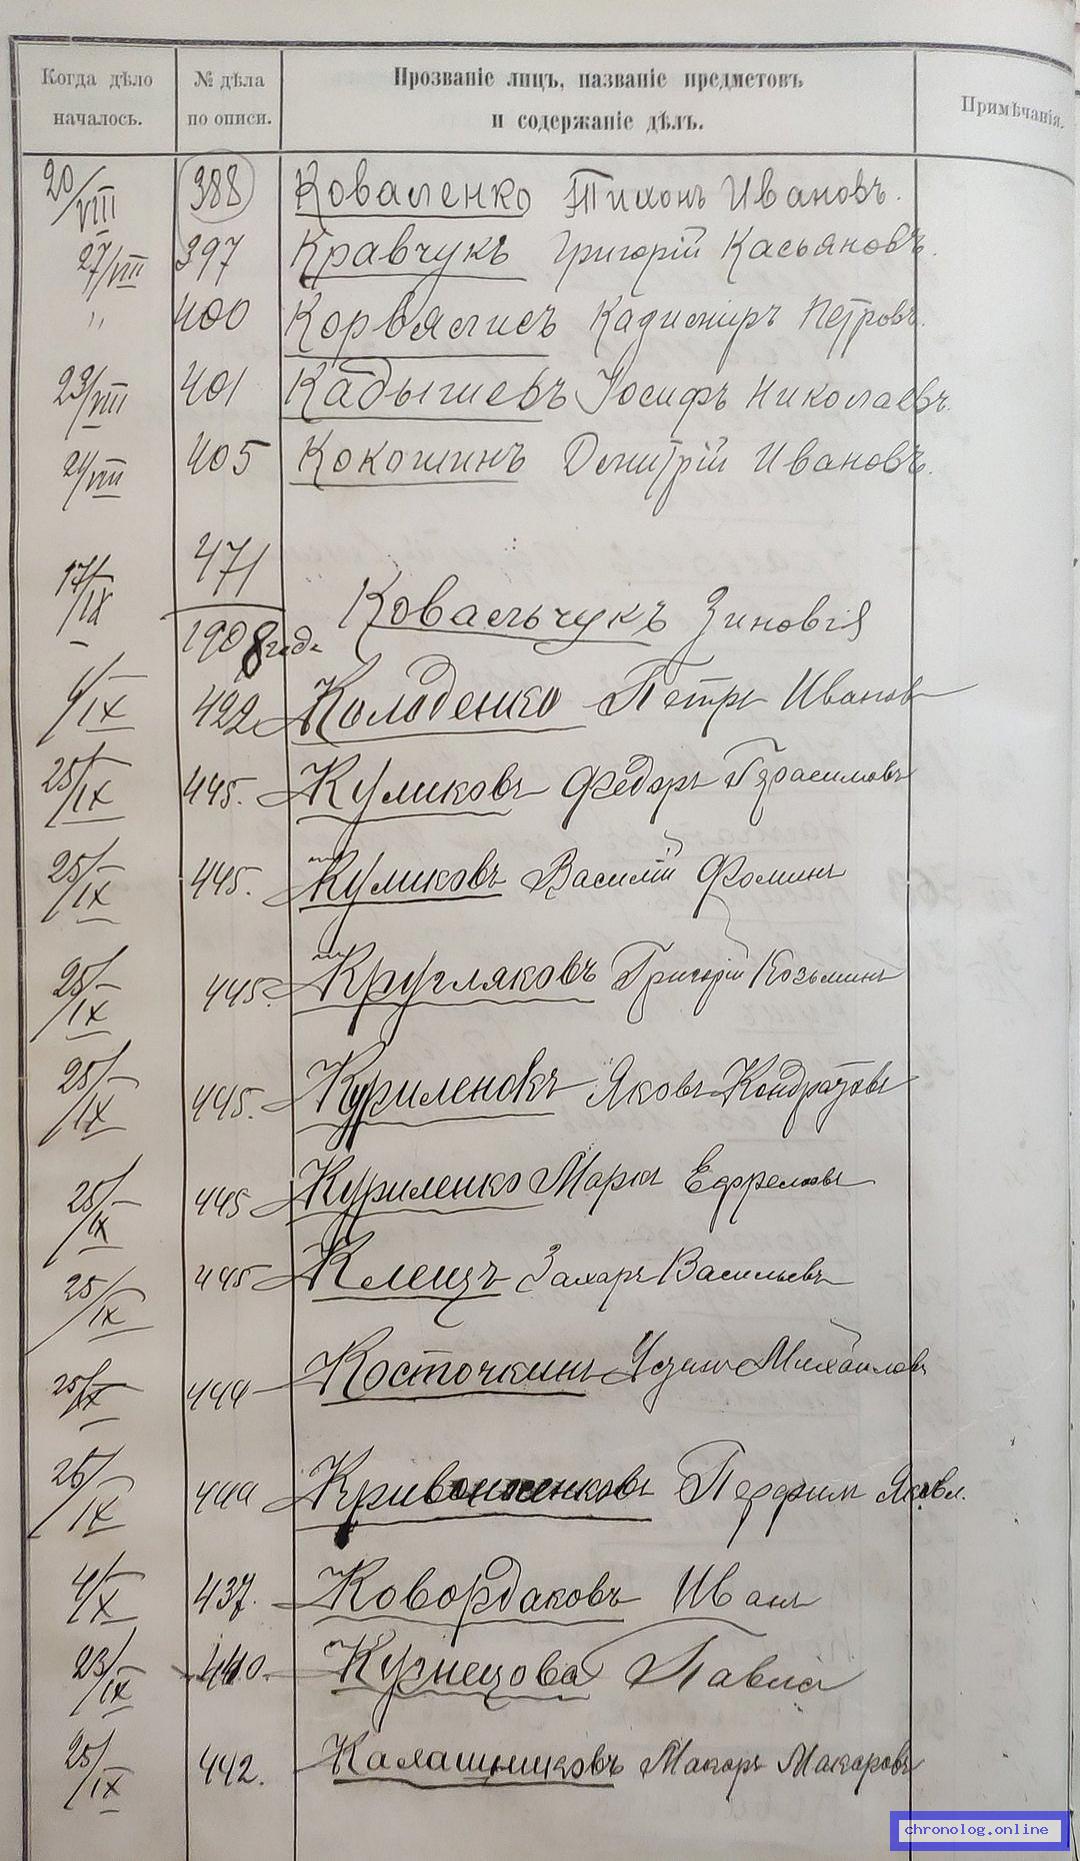 Когда дѣло началось. № дѣла по описи. Прозваніе лицъ, названіе предметовъ и содержаніе дѣлъ. Примѣчанія.
20/VIII 388 Коваленко Тихонъ Ивановъ.
27/VIII 397 Кравчукъ Григорій Касьяновъ.
" 400 Корвялисъ Кадимиръ Петровъ.
23/VIII 401 Кадышевъ Іосифъ Николаевъ.
21/VIII 405 Кокошинъ Дмитрій Ивановъ.
17/IX 471/1908 года Ковальчукъ Зиновія
/IX 422 Колоденко Петръ Иванов
25/IX 445. Куликовъ Федоръ Герасимовъ
25/IX 445. Куликовъ Василій Фоминъ
25/IX 445. Кругляковъ Григорій Козьминъ
25/IX 445. Куриленокъ Яковъ Кондратовъ
25/IX 445 Куриленко Марк Ефремовъ
25/IX 445 Клещъ Захаръ Васильевъ
25/IX 444 Косточкинъ Михайлов
25/IX 444 Перфил Яковл.
4/X 437. Ковордаковъ Иванъ
23/IX 440. Кузнецова Павла
25/IX 442. Калашниковъ Макаръ Макаровъ
chronolog.online